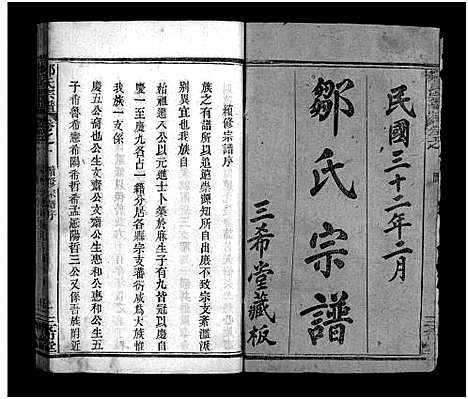 民國三十二年二月
鄒氏宗譜
三希堂藏板
續修宗譜序
族之有譜所以追遠崇源知所自出庶不致宗支紊濫派
別異宜也我族自
始祖進八公以元進士卜築於麻生子有九皆冠以慶自
慶一至慶九各占一籍分居各縣宗支蕃衍咸爲大族惟
我族一支係
慶五公裔也公生文齋公文齋公生惠和公惠和公生五
子希魯希憲希陽希哲希孟迺陽哲三公又係吾族附近
鄒氏宗譜
續修宗譜序
三希堂